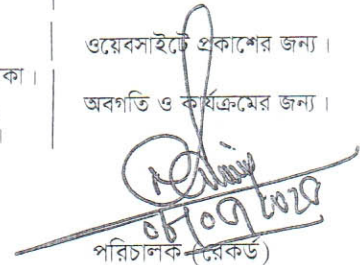 ওয়েবসাইটে প্রকাশের জন্য।
কা।
অবগতি ও কার্যক্রমের জন্য।
পরিচালক (রেকর্ড)